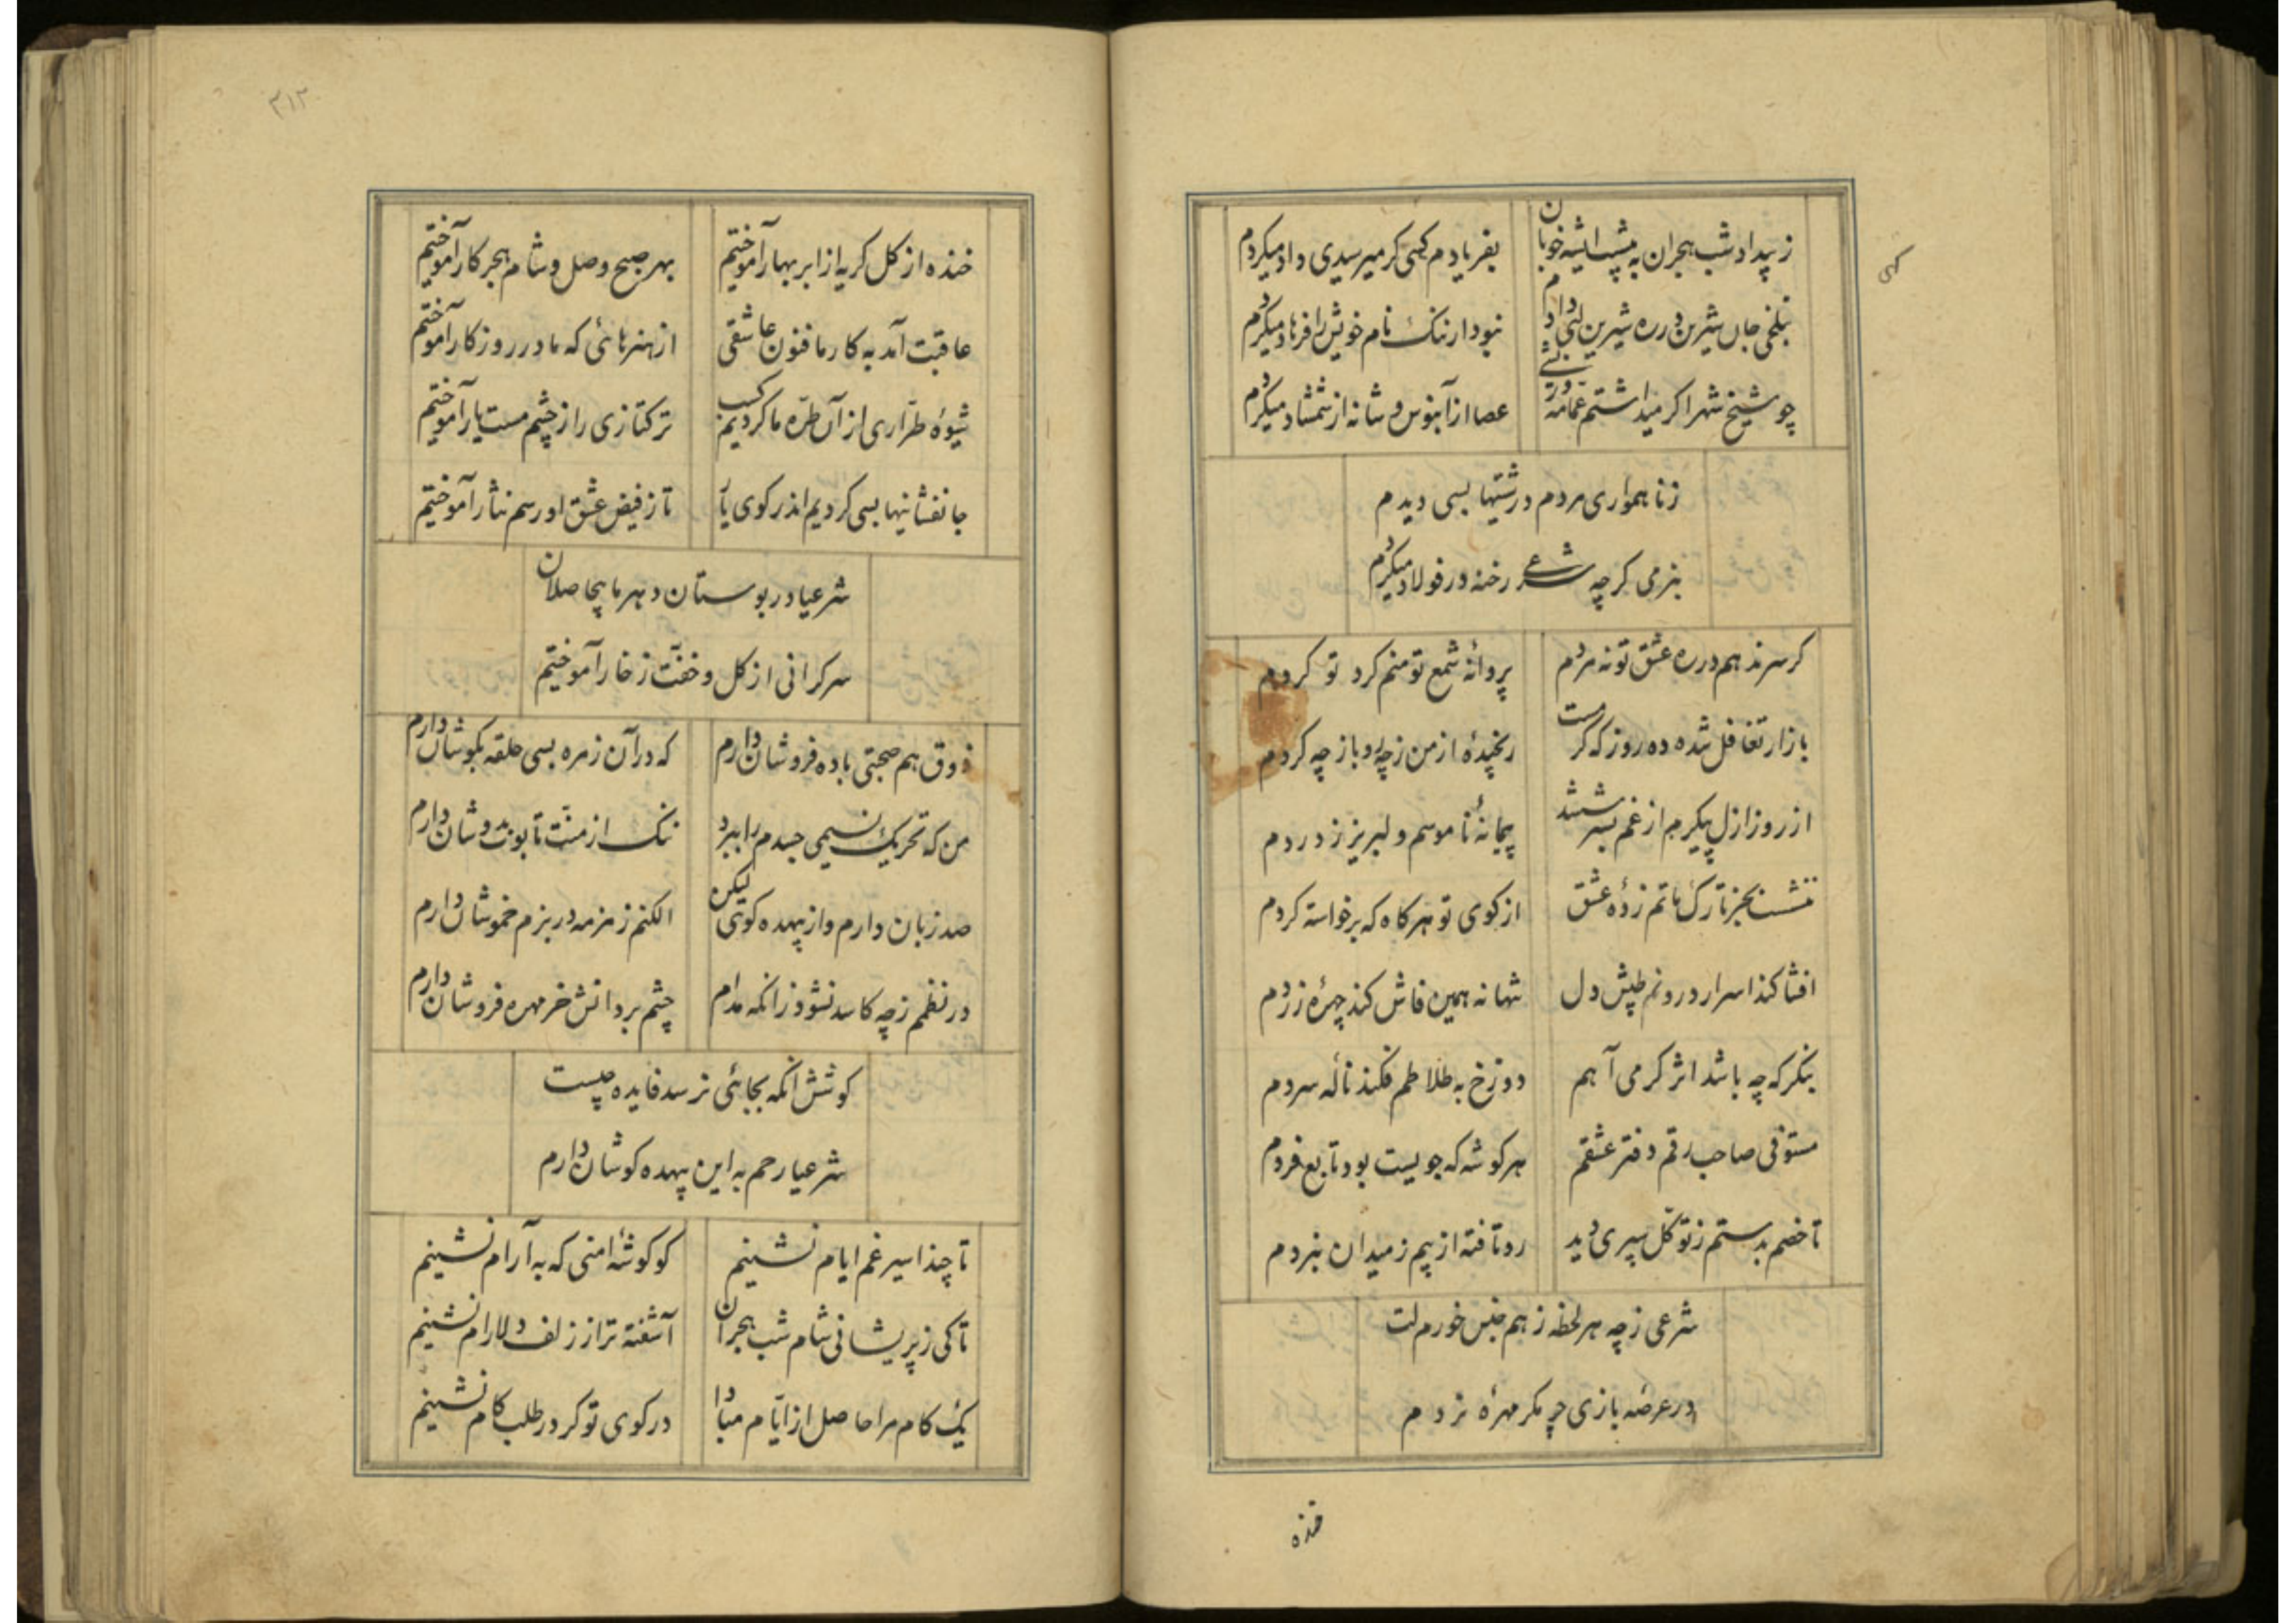 ز بیداد شب هجران به پیشت ایشه خوبان بفریادم کسی کر میرسیدی داد میکردم
کسی
بتلخی جان شیرین در ره شیرین لبی دادم نبود ار ننک نام خویش را فرهاد میکردم
چو شیخ شهر اکر میداشتم عمامه و ریشی عصا از آبنوس و شانه از شمشاد میکردم
ز ناهمواری مردم درشتیها بسی دیدم
بنرمی کرچه شرعی رخنه در فولاد میکردم
کر سر ندهم در ره عشق تو نه مردم پروانهٔ شمع تو منم کرد تو کردم
بازار تغافل شده ده روز که کرمست رنجیدهٔ از من ز چه رو باز چه کردم
از روز ازل پیکرم از غم بسرشتند پیمانهٔ ناموسم و لبریز ز دردم
ننشست بجز بر تارک ماتم زدهٔ عشق از کوی تو هر کاه که برخواسته کردم
افشا کند اسرار درونم طپش دل تنها نه همین فاش کند چهرهٔ زردم
بنکر که چه باشد اثر کرمی آهم دوزخ به طلاطم فکند نالهٔ سردم
مستوفی صاحب رقم دفتر عشقم هر کوشه که جویست بود تابع فردم
تا خصم بدستم ز توکل سپری دید رو تافته از بیم ز میدان نبردم
شرعی ز چه هر لحظه ز هم جنس خورم لت
در عرصهٔ بازی چو مکر مهرهٔ نردم
خنده
۳۱۲
خنده از کل کریه از ابر بهار آموختیم بهر صبح وصل و شام هجر کار آموختیم
عاقبت آمد به کار ما فنون عاشقی از هنرهائی که ما در روزکار آموختیم
شیوهٔ طراری از آن طره ما کردیم کسب ترکتازی را ز چشم مست یار آموختیم
جانفشانیها بسی کردیم اندر کوی یار تا ز فیض عشق او رسم نثار آموختیم
شرعیا در بوستان دهر ما بیحاصلان
سرکرانی از کل و خفت ز خار آموختیم
ذوق هم صحبتی باده فروشان دارم که در آن زمره بسی حلقه بکوشان دارم
من که تحریک نسیمی جسدم را ببرد ننک از منت تابوت بدوشان دارم
صد زبان دارم و از بیهده کوئی لیکن الکنم زمزمه در بزم خموشان دارم
در نظمم ز چه کاسد نشود زانکه مدام چشم بر دانش خرمهره فروشان دارم
کوشش آنکه بجائی نرسد فایده چیست
شرعیا رحم به این بیهده کوشان دارم
تا چند اسیر غم ایام نشینم کو کوشهٔ امنی که به آرام نشینم
تا کی ز پریشانی شام شب هجران آشفته تر از زلف دلارام نشینم
یک کام مرا حاصل از ایام مبادا در کوی تو کر در طلب کام نشینم